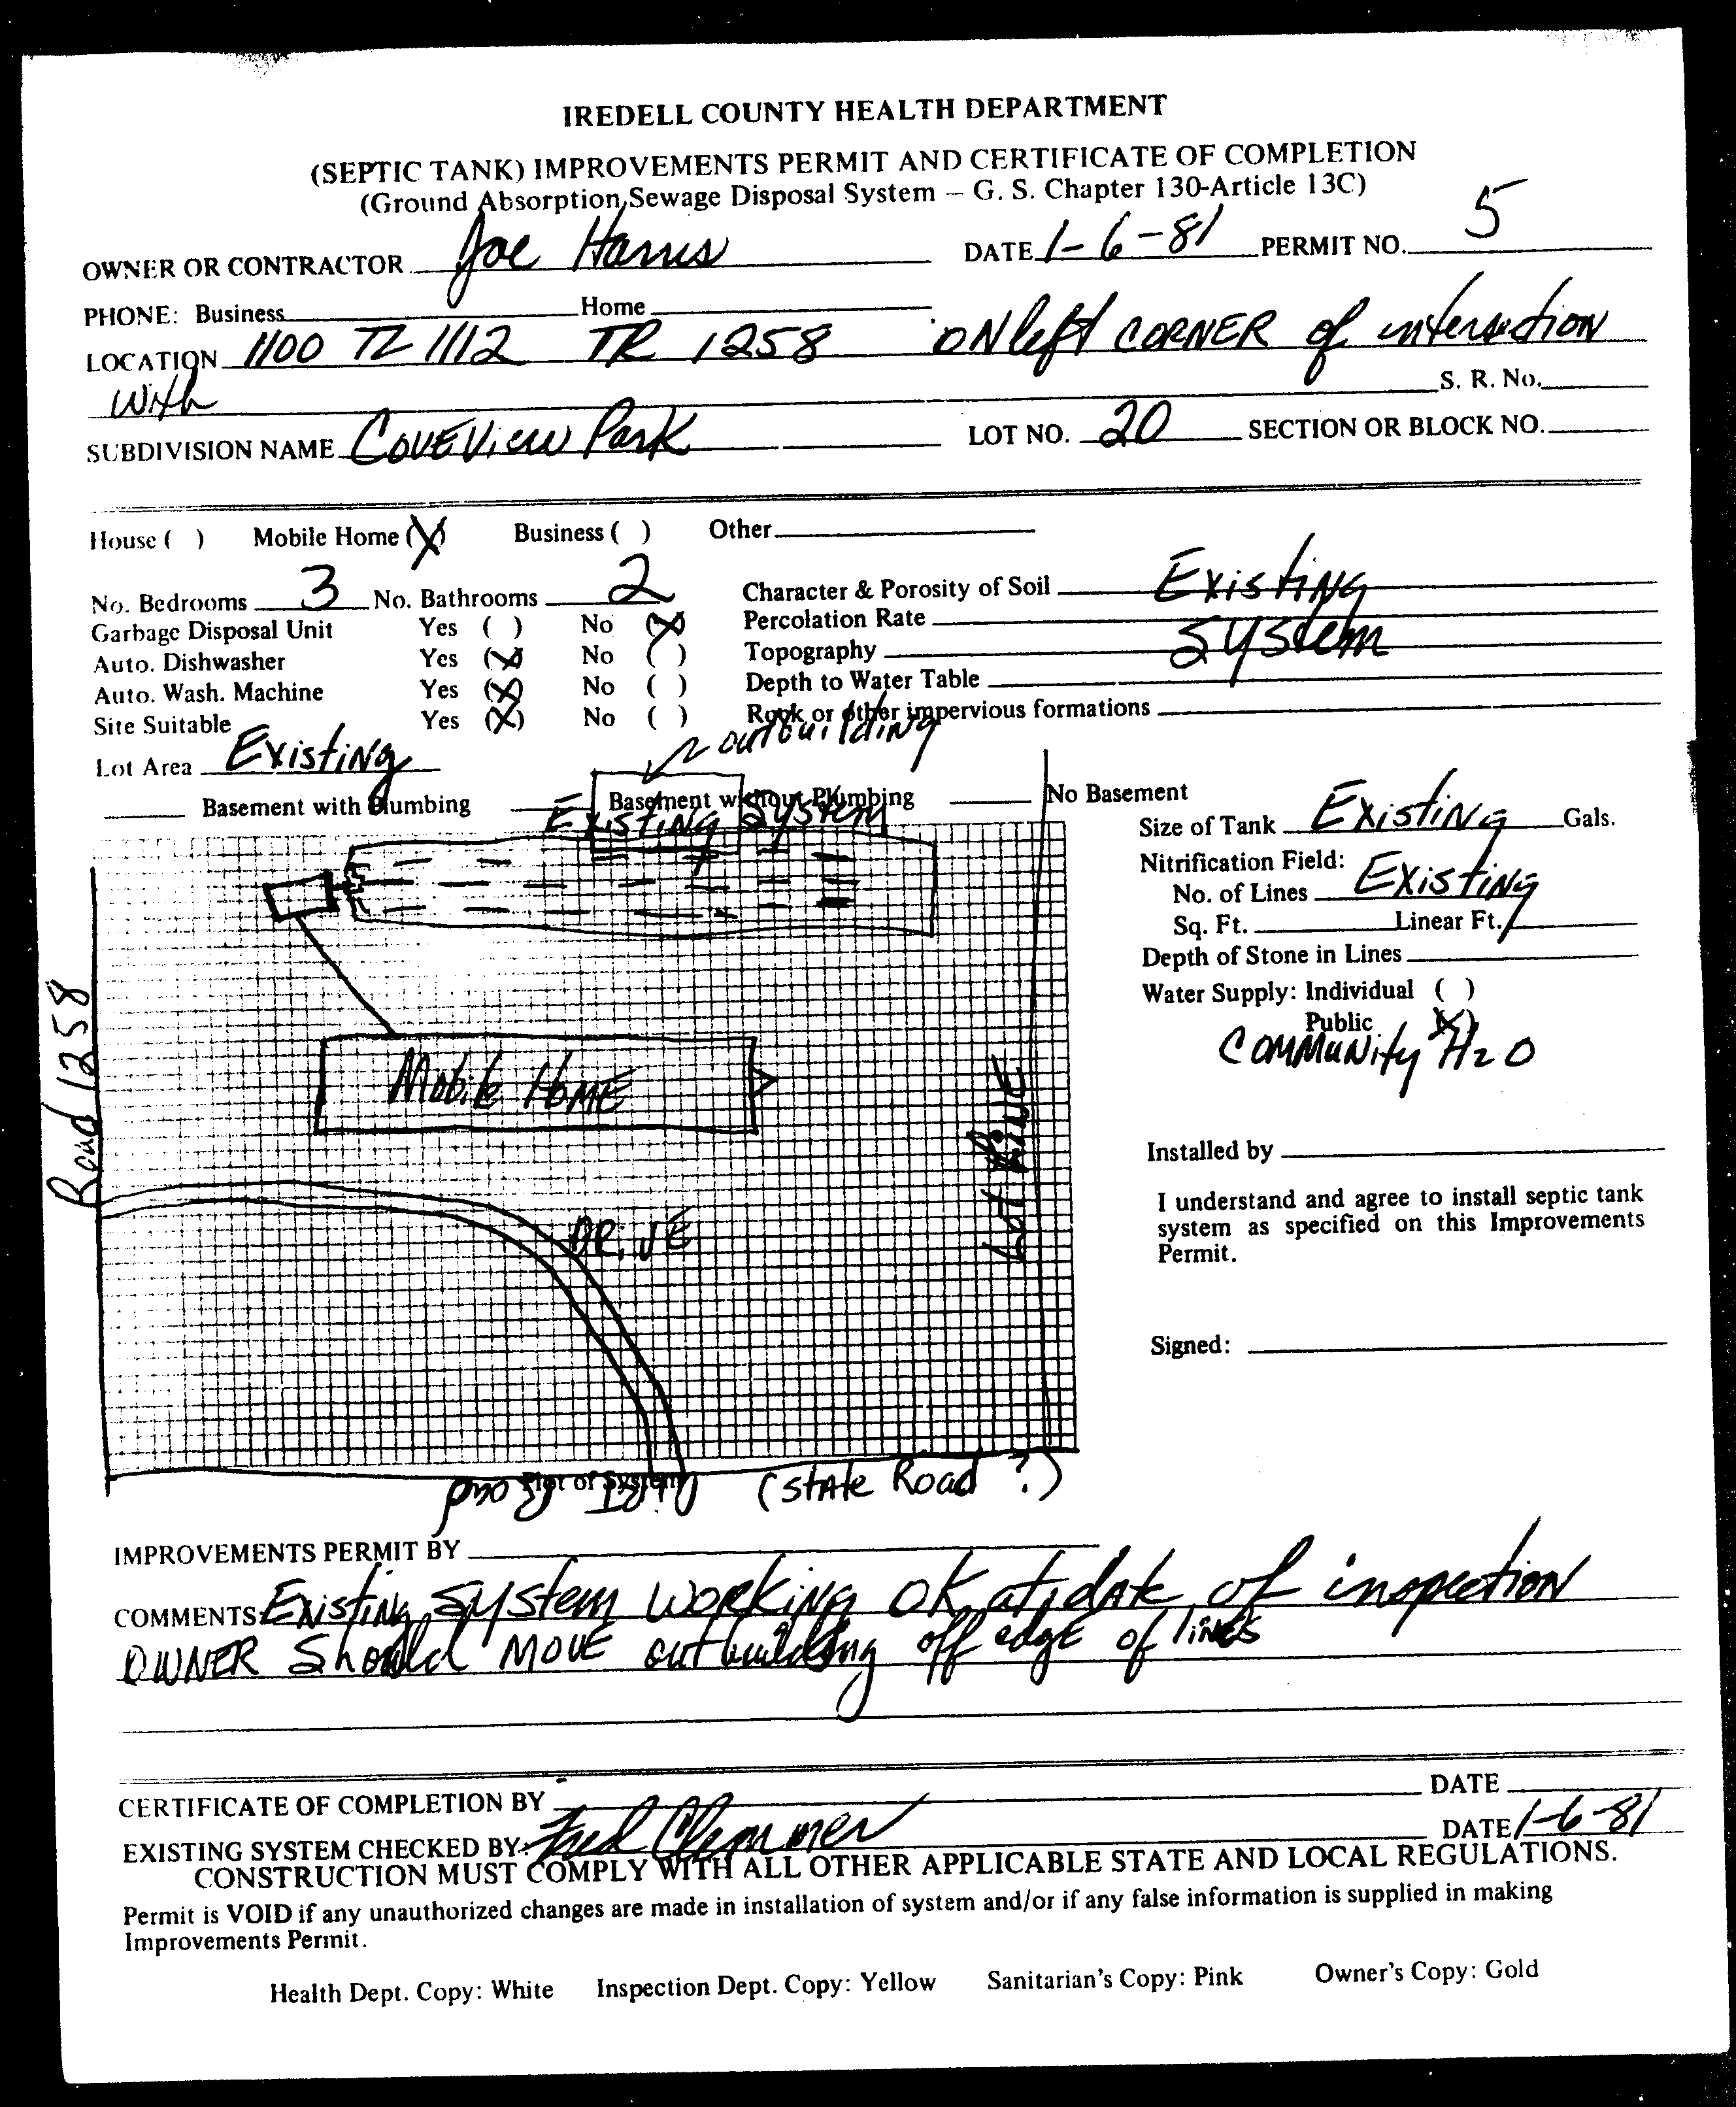 IREDELL COUNTY HEALTH DEPARTMENT
(SEPTIC TANK) IMPROVEMENTS PERMIT AND CERTIFICATE OF COMPLETION
(Ground Absorption Sewage Disposal System — G. S. Chapter 130-Article 13C)
OWNER OR CONTRACTOR Joe Harris DATE 1-6-81 PERMIT NO. 5
PHONE: Business Home
LOCATION 1100 TL 1112 TR 1258 ON left CORNER of intersection
with S. R. No.
SUBDIVISION NAME COVEView Park LOT NO. 20 SECTION OR BLOCK NO.
House ( ) Mobile Home (X) Business ( ) Other
No. Bedrooms 3 No. Bathrooms 2 Character & Porosity of Soil Existing
Garbage Disposal Unit Yes ( ) No (X) Percolation Rate System
Auto. Dishwasher Yes (X) No ( ) Topography
Auto. Wash. Machine Yes (X) No ( ) Depth to Water Table
Site Suitable Yes (X) No ( ) Rock or other impervious formations
outbuilding
Lot Area Existing
Basement with Plumbing Basement without Plumbing No Basement
Existing System
Size of Tank Existing Gals.
Nitrification Field:
No. of Lines Existing
Sq. Ft. Linear Ft.
Depth of Stone in Lines
Water Supply: Individual ( )
Public (X)
COMMUNity H2O
Road 1258
Mobile HOME
Lot LINE
DRIVE
Installed by
I understand and agree to install septic tank
system as specified on this Improvements
Permit.
Signed:
Plot of System
Road (state Road ?)
IMPROVEMENTS PERMIT BY
COMMENTS: Existing System WORKING OK at date of inspection
OWNER Should MOVE outbuilding off edge of lines
CERTIFICATE OF COMPLETION BY DATE
EXISTING SYSTEM CHECKED BY: Fred Clemmer DATE 1-6-81
CONSTRUCTION MUST COMPLY WITH ALL OTHER APPLICABLE STATE AND LOCAL REGULATIONS.
Permit is VOID if any unauthorized changes are made in installation of system and/or if any false information is supplied in making
Improvements Permit.
Health Dept. Copy: White Inspection Dept. Copy: Yellow Sanitarian's Copy: Pink Owner's Copy: Gold